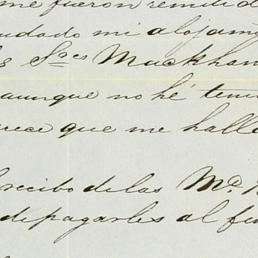 me fueron remitid
udado mi alojam
Sres Mackhan
aunque no hé teni
arece que me halle
recibo de las Md.
de pagarles al fu